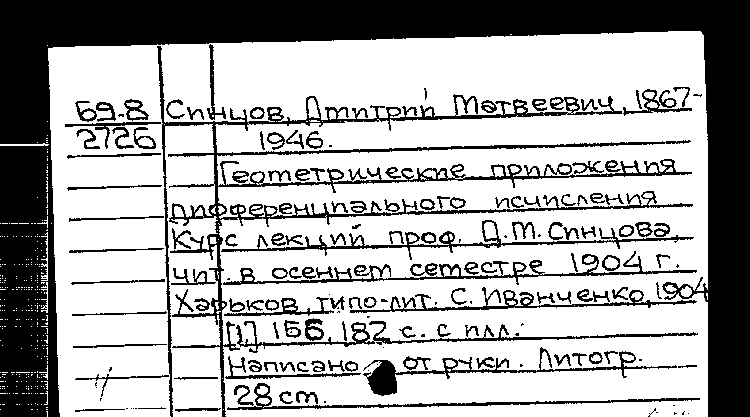 69-8 Синцов, Дмитрий Матвеевич, 1867-
2726 1946.
Геометрические приложения
дифференциального исчисления
Курс лекций проф. Д.М. Синцова,
чит. в осеннем семестре 1904 г.
Харьков, типо-лит. С. Иванченко, 1904
[1], 156, 182 с. с илл.
Написано от руки. Литогр.
28 cm.